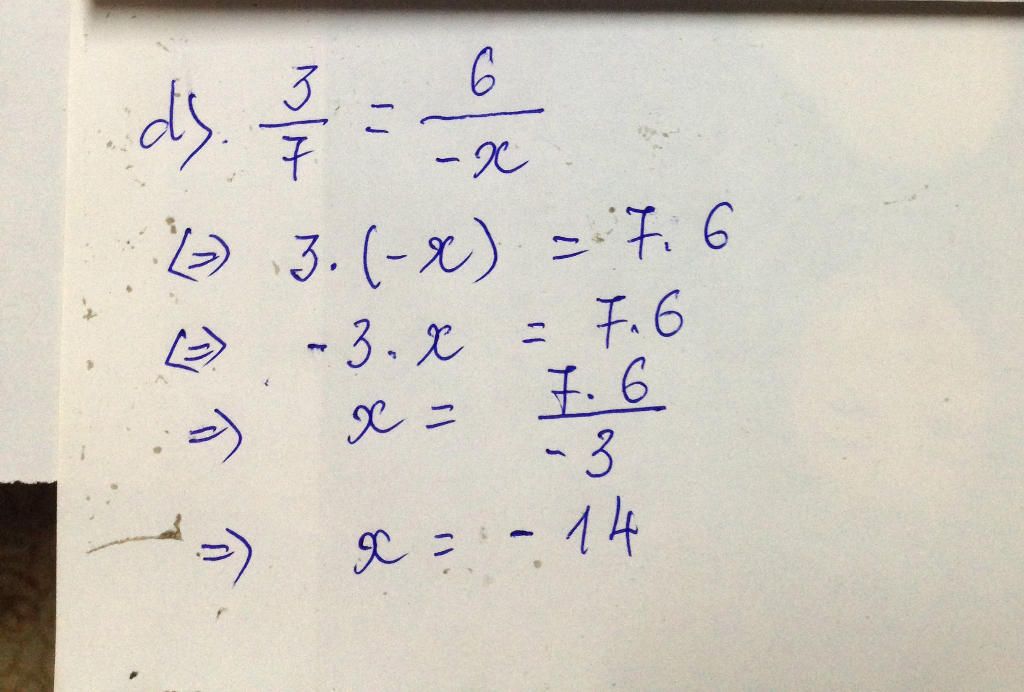 d). 3/7 = 6/-x
<=> 3.(-x) = 7.6
<=> -3.x = 7.6
=> x = 7.6/-3
=> x = -14